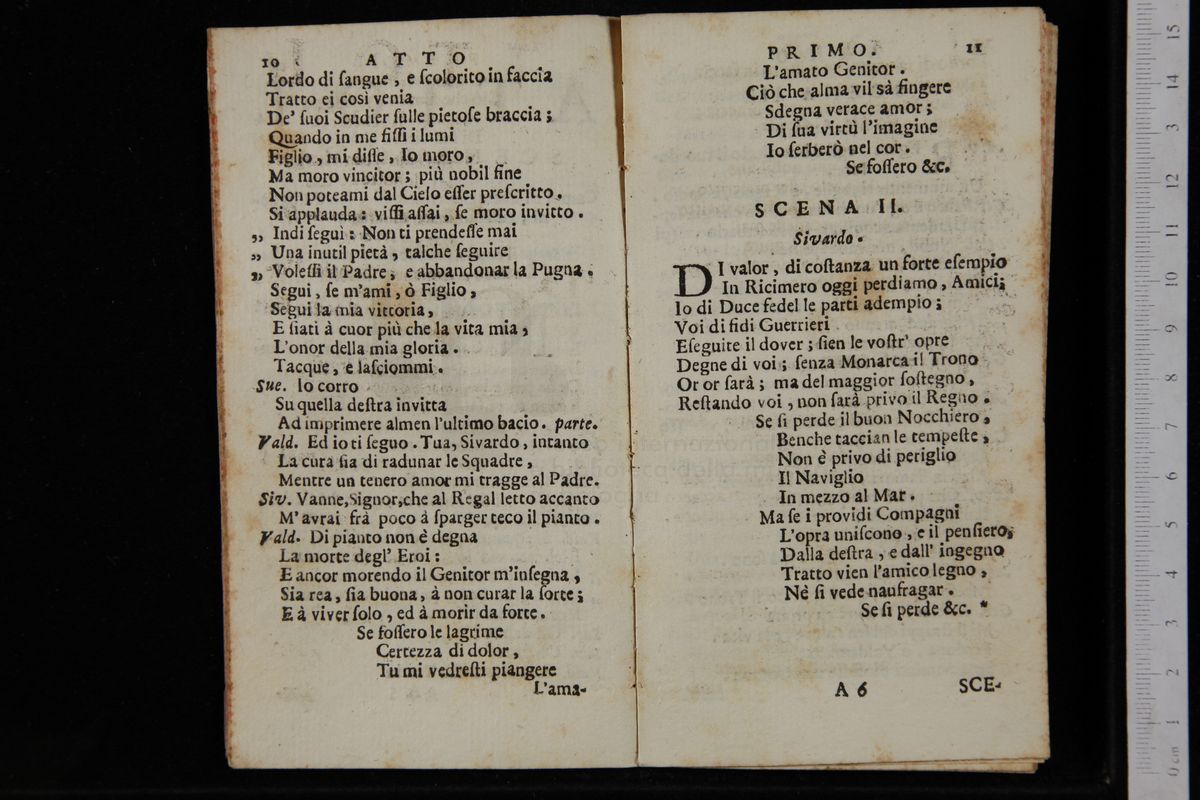 10 ATTO
Lordo di ſangue, e ſcolorito in faccia
Tratto ei così venia
De' ſuoi Scudier ſulle pietoſe braccia;
Quando in me fiſſi i lumi
Figlio, mi diſſe, Io moro,
Ma moro vincitor; più nobil fine
Non poteami dal Cielo eſſer preſcritto.
Si applauda: viſſi aſſai, ſe moro invitto.
„ Indi ſeguì: Non ti prendeſſe mai
„ Una inutil pietà, talche ſeguire
„ Voleſſi il Padre, e abbandonar la Pugna.
Segui, ſe m'ami, ò Figlio,
Segui la mia vittoria,
E ſiati à cuor più che la vita mia,
L'onor della mia gloria.
Tacque, e laſciommi.
Sue. Io corro
Su quella deſtra invitta
Ad imprimere almen l'ultimo bacio. parte.
Vald. Ed io ti ſeguo. Tua, Sivardo, intanto
La cura ſia di radunar le Squadre,
Mentre un tenero amor mi tragge al Padre.
Siv. Vanne, Signor, che al Regal letto accanto
M'avrai frà poco à ſparger teco il pianto.
Vald. Di pianto non è degna
La morte degl' Eroi:
E ancor morendo il Genitor m'inſegna,
Sia rea, ſia buona, à non curar la ſorte;
E à viver ſolo, ed à morir da forte.
Se foſſero le lagrime
Certezza di dolor,
Tu mi vedreſti piangere
L'ama-
PRIMO. 11
L'amato Genitor.
Ciò che alma vil sà fingere
Sdegna verace amor;
Di ſua virtù l'imagine
Io ſerberò nel cor.
Se foſſero &c.
SCENA II.
Sivardo.
DI valor, di coſtanza un forte eſempio
In Ricimero oggi perdiamo, Amici;
Io di Duce fedel le parti adempio;
Voi di fidi Guerrieri
Eſeguite il dover; ſien le voſtr' opre
Degne di voi; ſenza Monarca il Trono
Or or ſarà; ma del maggior ſoſtegno,
Reſtando voi, non ſarà privo il Regno.
Se ſi perde il buon Nocchiero,
Benche taccian le tempeſte,
Non è privo di periglio
Il Naviglio
In mezzo al Mar.
Ma ſe i providi Compagni
L'opra uniſcono, e il penſiero,
Dalla deſtra, e dall' ingegno
Tratto vien l'amico legno,
Nè ſi vede naufragar.
Se ſi perde &c.
A 6 SCE-
0 cm 1 2 3 4 5 6 7 8 9 10 11 12 13 14 15